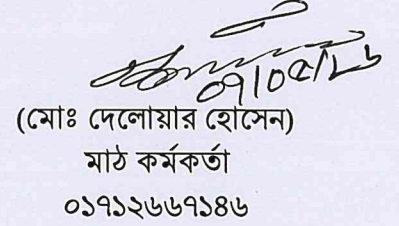 ০৭/০৫/২৬
(মোঃ দেলোয়ার হোসেন)
মাঠ কর্মকর্তা
০১৭১২৬৬৭১৪৬